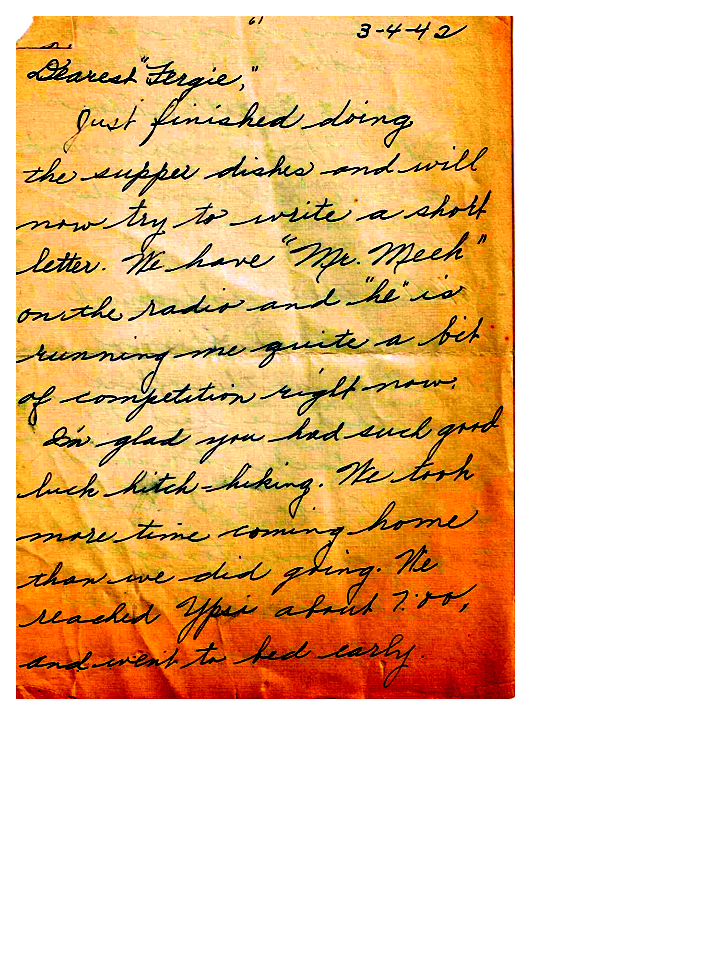 3-4-42
Dearest "Fergie,"
Just finished doing
the supper dishes and will
now try to write a short
letter. We have "Mr. Meek"
on the radio and "he" is
running me quite a bit
of competition right now.
I'm glad you had such good
luck hitch-hiking. We took
more time coming home
than we did going. We
reached Ypsi about 7:00,
and went to bed early.